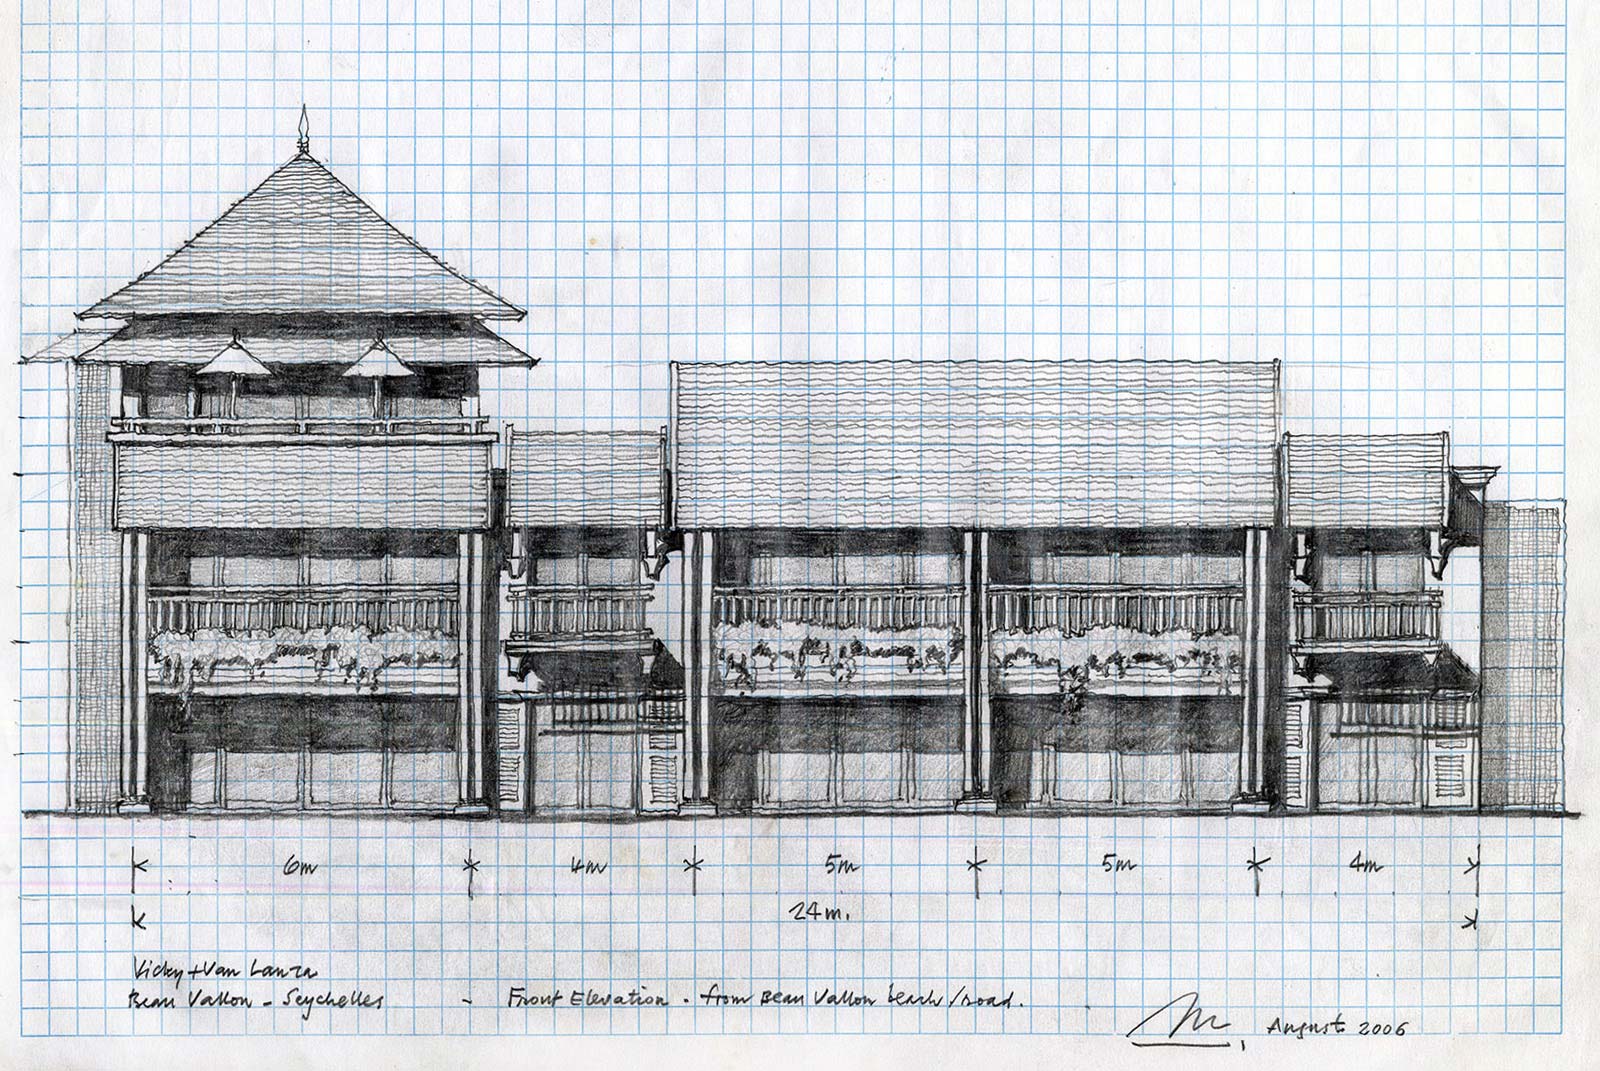 6m 4m 5m 5m 4m
24m.
Vicky + Van Lanza
Beau Vallon - Seychelles - Front Elevation . from Beau Vallon beach / road.
August 2006